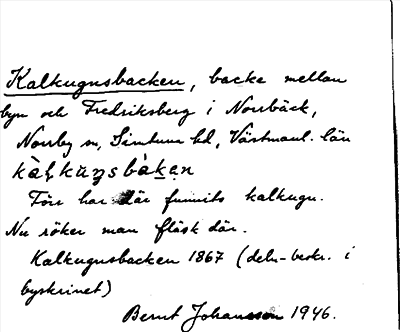 Kalkugnsbacken, backe mellan
byn och Fredriksberg i Norrbäck,
Norrby sn, Simtuna hd, Västmanl. län
kàļkùŋsbàkən
Förr har där funnits kalkugn.
Nu röker man fläsk där.
Kalkugnsbacken 1867 (deln-beskr. i
byskrinet)
Bernt Johansson 1946.